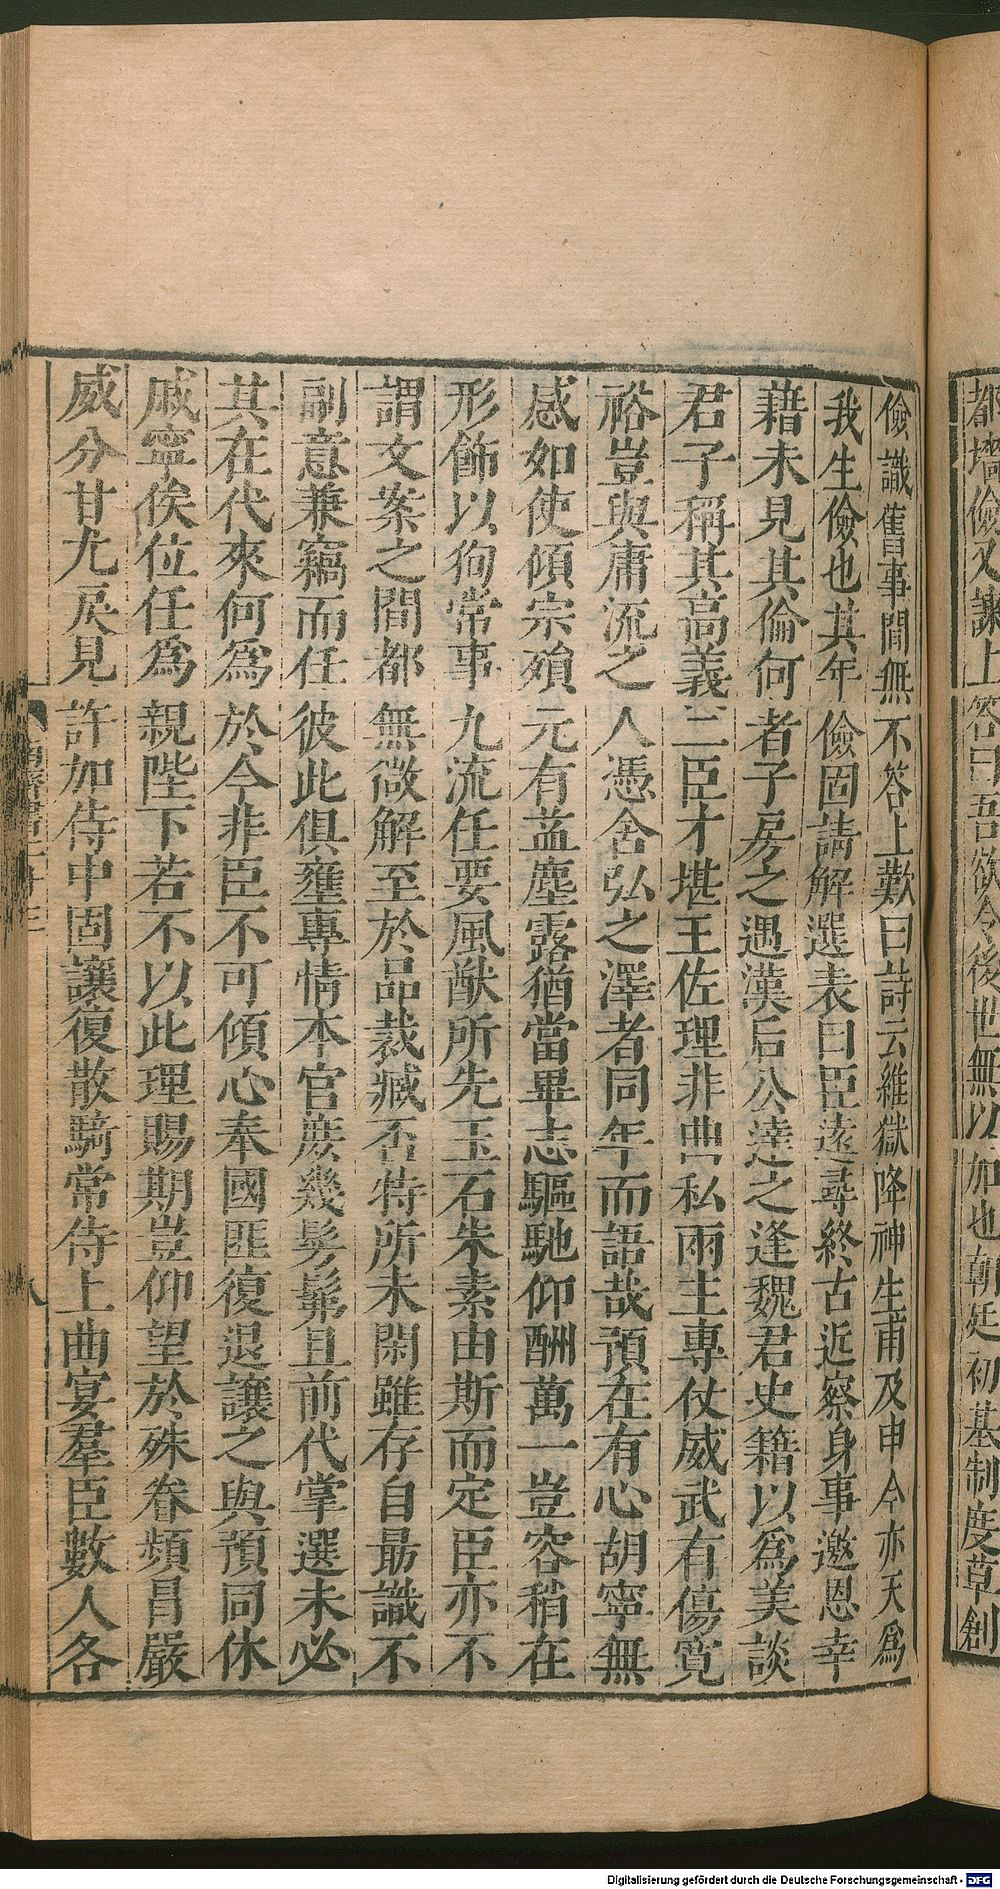 都壇儉又諫上答曰吾欲令後世無以加也朝廷初基制度草創
儉識舊事問無不答上歎曰詩云維嶽降神生甫及申今亦天爲
我生儉也其年儉固請解選表曰臣遠尋終古近察身事邀恩幸
藉未見其倫何者子房之遇漢后公達之逢魏君史籍以爲美談
君子稱其高義二臣才堪王佐理非曲私兩主專仗威武有傷寬
裕豈與庸流之人憑含弘之澤者同年而語哉預在有心胡寧無
感如使傾宗殞元有益塵露猶當畢志驅馳仰酬萬一豈容稍在
形飾以狥常事九流任要風猷所先玉石朱素由斯而定臣亦不
謂文案之間都無微解至於品裁臧否特所未閑雖存自最識不
副意兼竊而任彼此俱壅專情本官庶幾髣髴且前代掌選未必
其在代來何爲於今非臣不可傾心奉國匪復退讓之與預同休
戚寧俟位任爲親陛下若不以此理賜期豈仰望於殊眷頻冒嚴
威分甘尤戾見許加侍中固讓復散騎常侍上曲宴羣臣數人各
八
Digitalisierung gefördert durch die Deutsche Forschungsgemeinschaft - DFG